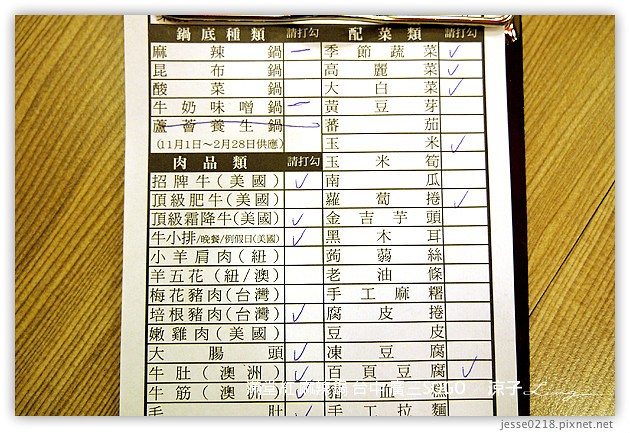 鍋底種類 請打勾 配菜類 請打勾
麻辣鍋 季節蔬菜
昆布鍋 高麗菜
酸菜鍋 大白菜
牛奶味噌鍋 黃豆芽
蘆薈養生鍋 蕃茄
(11月1日～2月28日供應) 玉米
肉品類 請打勾 玉米筍
招牌牛(美國) 南瓜
頂級肥牛(美國) 蘿蔔捲
頂級霜降牛(美國) 金吉芋頭
牛小排/晚餐/例假日(美國) 黑木耳
小羊肩肉(紐) 蒟蒻絲
羊五花(紐/澳) 老油條
梅花豬肉(台灣) 手工麻糬
培根豬肉(台灣) 腐皮捲
嫩雞肉(美國) 豆皮
大腸頭 凍豆腐
牛肚(澳洲) 百頁豆腐
牛筋(澳洲) 豬血糕
手工拉麵
jesse0218.pixnet.net